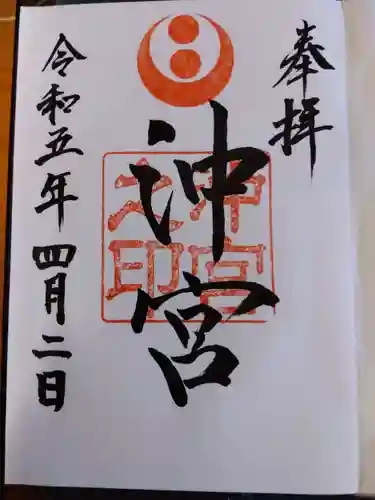 奉拝
沖宮
沖宮之印
令和五年四月二日